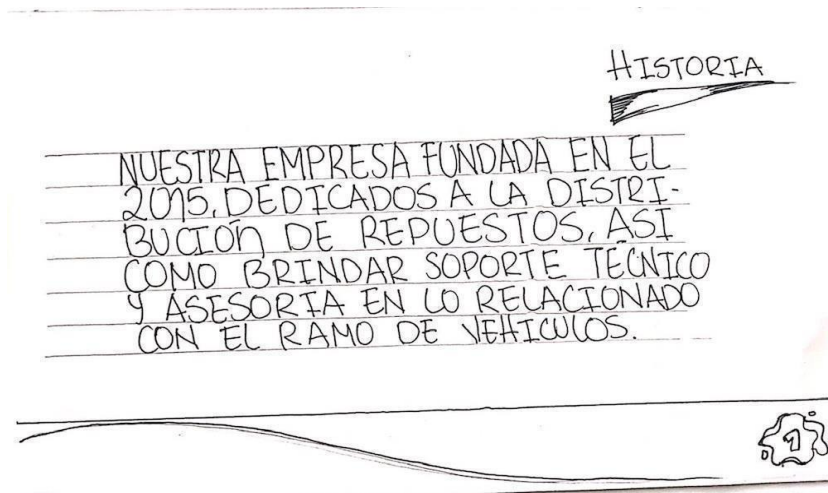 HISTORIA
NUESTRA EMPRESA FUNDADA EN EL
2015, DEDICADOS A LA DISTRI-
BUCIÓN DE REPUESTOS, ASI
COMO BRINDAR SOPORTE TÉCNICO
Y ASESORIA EN LO RELACIONADO
CON EL RAMO DE VEHICULOS.
1